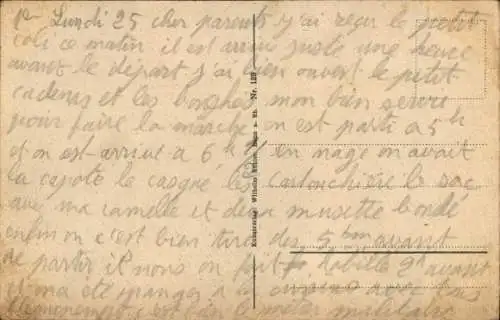 Lundi 25 cher parents j'ai reçu le petit
coli ce matin il est arrivé juste une heure
avant le départ j'ai bien ouvert le petit
cadenas et les mon bien servi
pour faire la marche on est parti a 5 h
et on est arrivé a 6 en nage on avait
la capote le casque les cartouchière le sac
avec ma gamelle et deux musette bondé
enfin on c'est bien tiré des 5 avant
de partir il nous on fait habillé avant
et ma été a la avec tous
c'est le métier militaire
Nr. 129
Kunstverlag Wilhelm